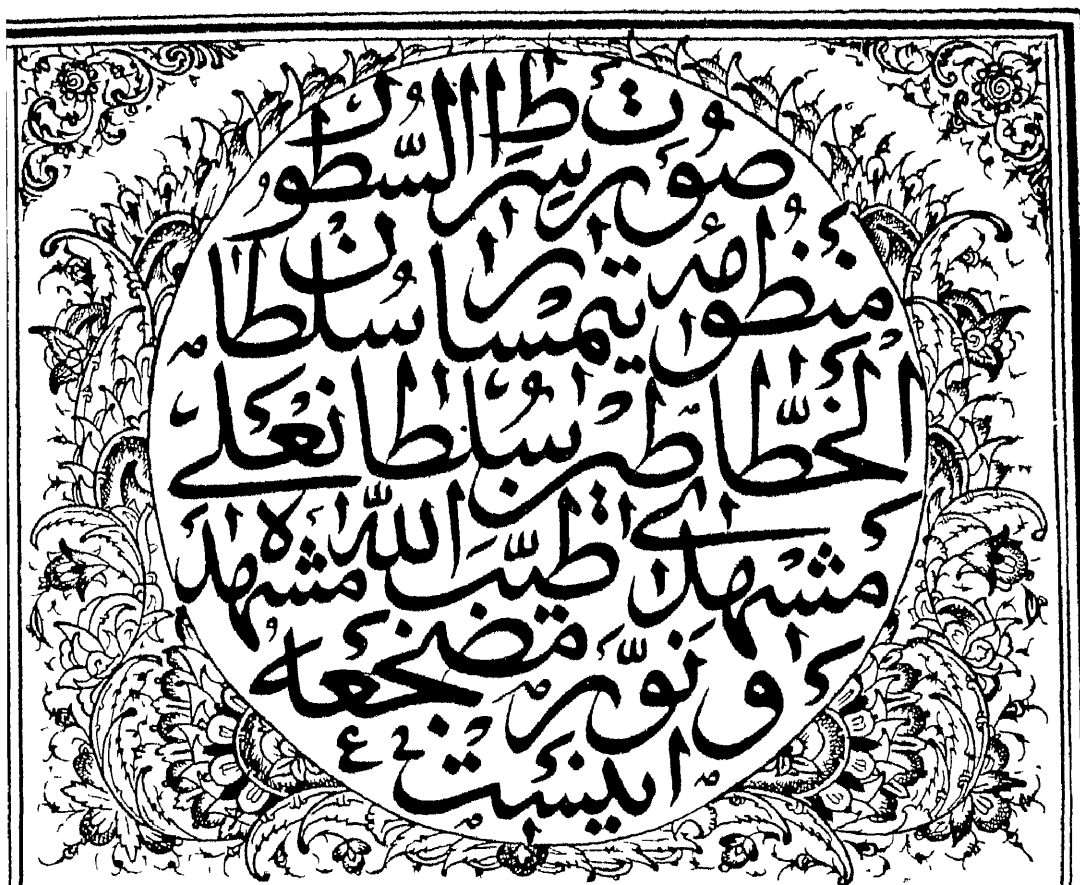 صورت سِراطِ السّطور
منظومهٔ تیمسار سُلطان
الخطّاطین سُلطانعَلی
مشهدی طیَّبَ اللّه مشهدَه
و نَوّرَ مضجَعهُ
اینست